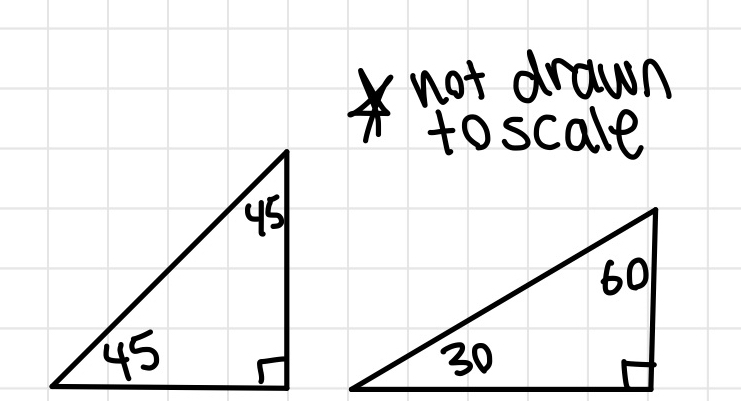 * not drawn
to scale
45
45
60
30